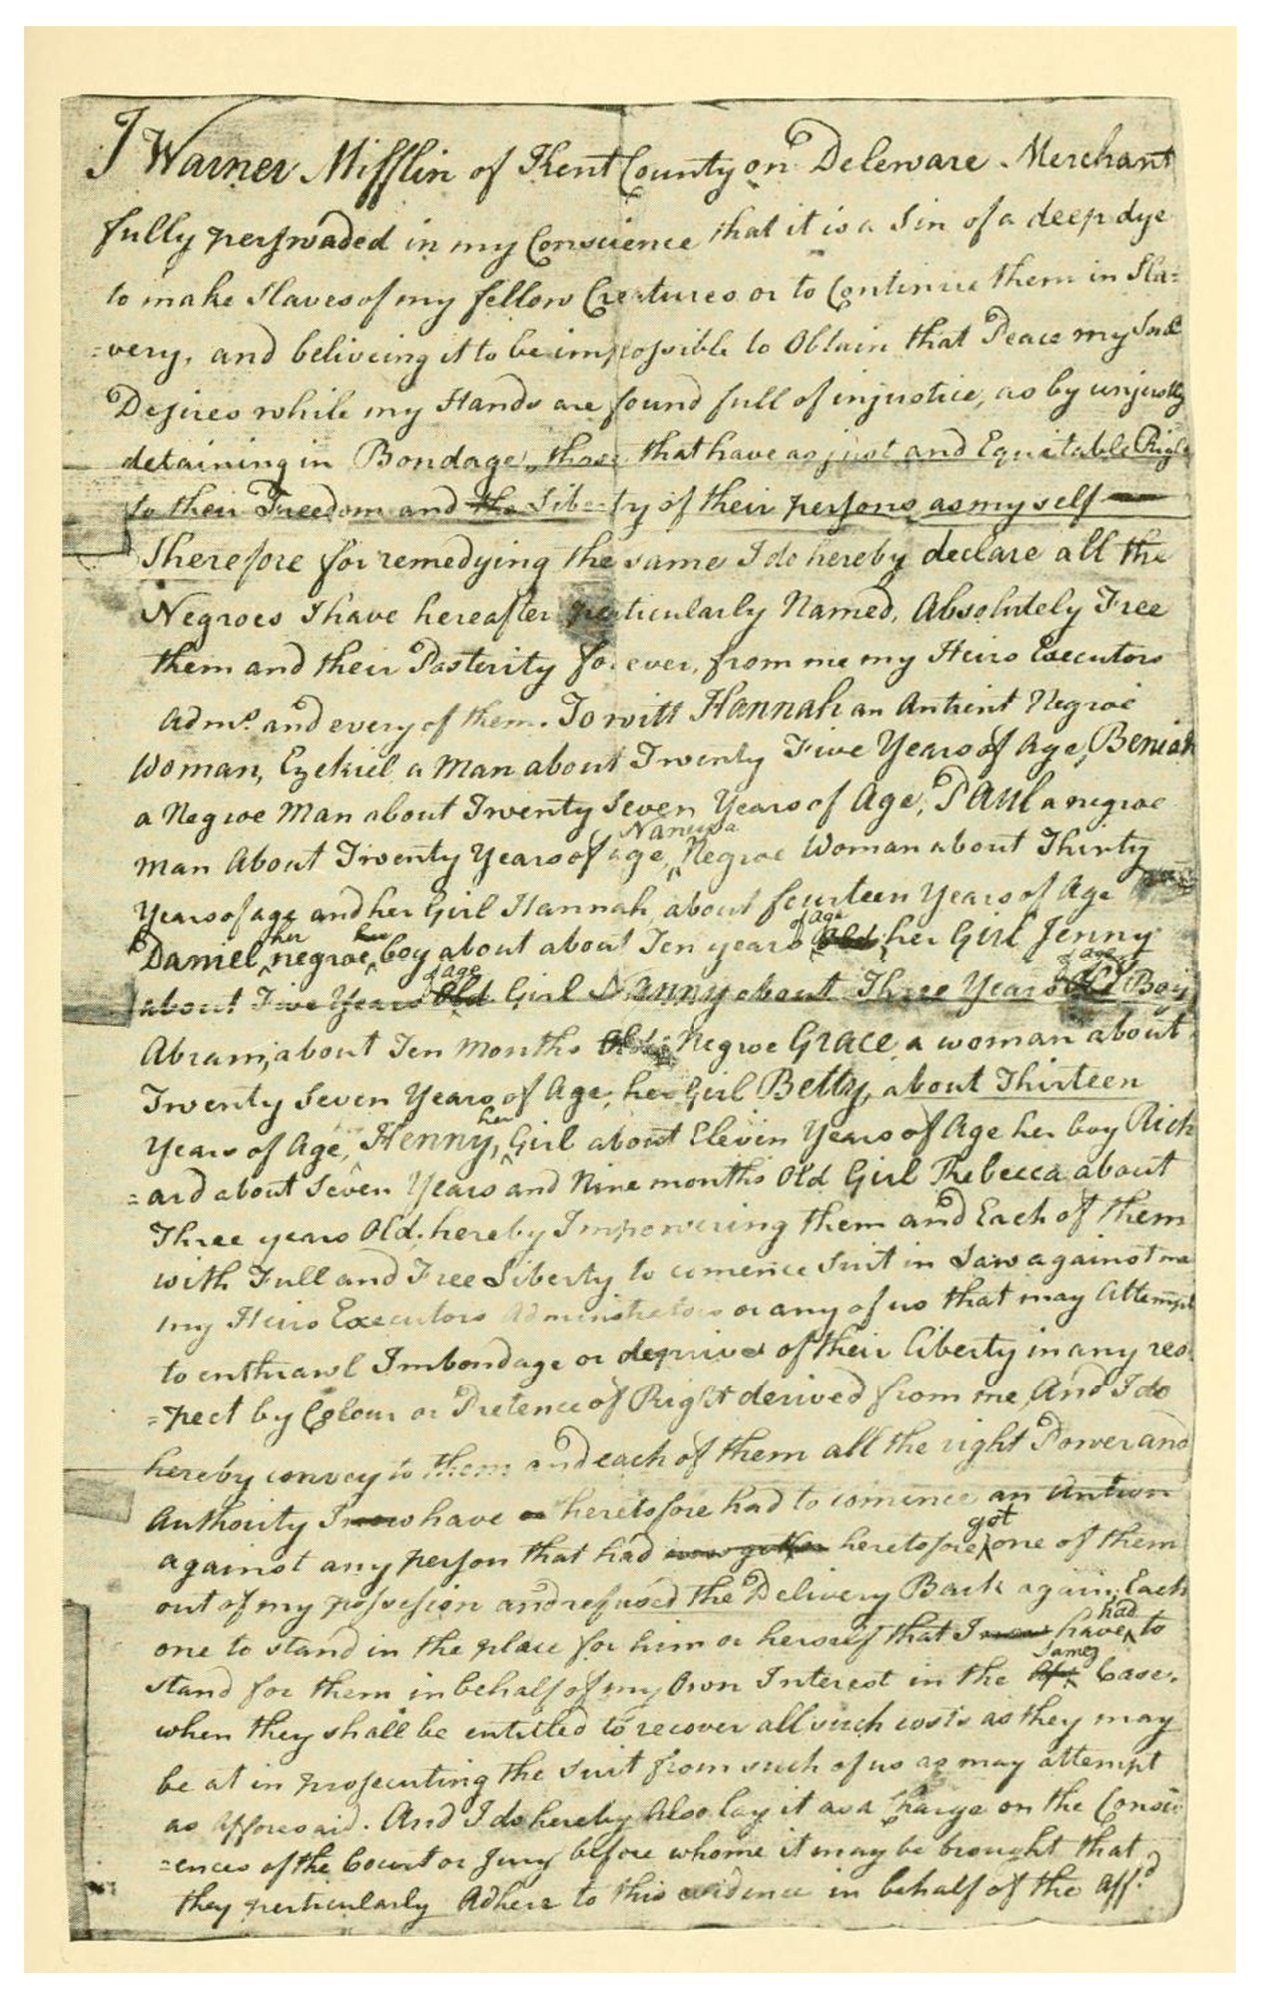 I Warner Mifflin of Kent County on Deleware Merchant
fully perswaded in my Conscience that it is a Sin of a deep dye
to make Slaves of my fellow Creatures or to Continue them in Sla=
=very, and beliveing it to be impossible to Obtain that Peace my Soul
Desires while my Hands are found full of injustice, as by unjustly
detaining in Bondage, those that have as just and Equitable Right
to their Freedom and the Liberty of their persons as myself —
Therefore for remedying the same I do hereby declare all the
Negroes I have hereafter particularly Named, Absolutely Free
them and their Posterity forever, from me my Heirs Executors
Admrs. and every of them. To witt Hannah an Antient Negroe
Woman, Ezekiel a Man about Twenty Five Years of Age, Beniah
a Negroe Man about Twenty Seven Years of Age, Paul a negroe
Nanusa
man About Twenty Years of age, ^ Negroe Woman about Thirty
Years of age and her Girl Hannah, about fourteen Years of Age
her her of Age
Daniel ^ negroe ^ boy about about Ten years Old, her Girl Jenny
of age of age
about Five Years Old Girl Nanny about Three Years Old Boy
Abram, about Ten Months Old Negroe Grace a woman about
Twenty Seven Years of Age, her Girl Betty, about Thirteen
her
Years of Age, Henny, ^ Girl about Eleven Years of Age her boy Rich
=ard about Seven Years and Nine months Old Girl Rebecca about
Three years Old, hereby Impowering them and Each of them
with Full and Free Liberty to comence Suit in Law against me
my Heirs Executors Administrators or any of us that may Attempt
to enthrawl Imbondage or deprive of their liberty in any res
=pect by Colour or Pretence of Right derived from me, And I do
hereby convey to them and each of them all the right Power and
Authority I now have or heretofore had to comence an Antion
got
against any person that had now gotten heretofore ^ one of them
out of my possession and refused the Delivery Back again, Each
had
one to stand in the place for him or herself that I now have ^ to
Same
stand for them in behalf of my Own Interest in the ^ Case.
when they shall be entitled to recover all such costs as they may
be at in prosecuting the Suit from such of us as may attempt
as Afforesaid. And I do hereby Also lay it as a Charge on the Consci
=ences of the Court or Jury before whome it may be brought that
they perticularly Adhere to this evidence in behalf of the Aff.d